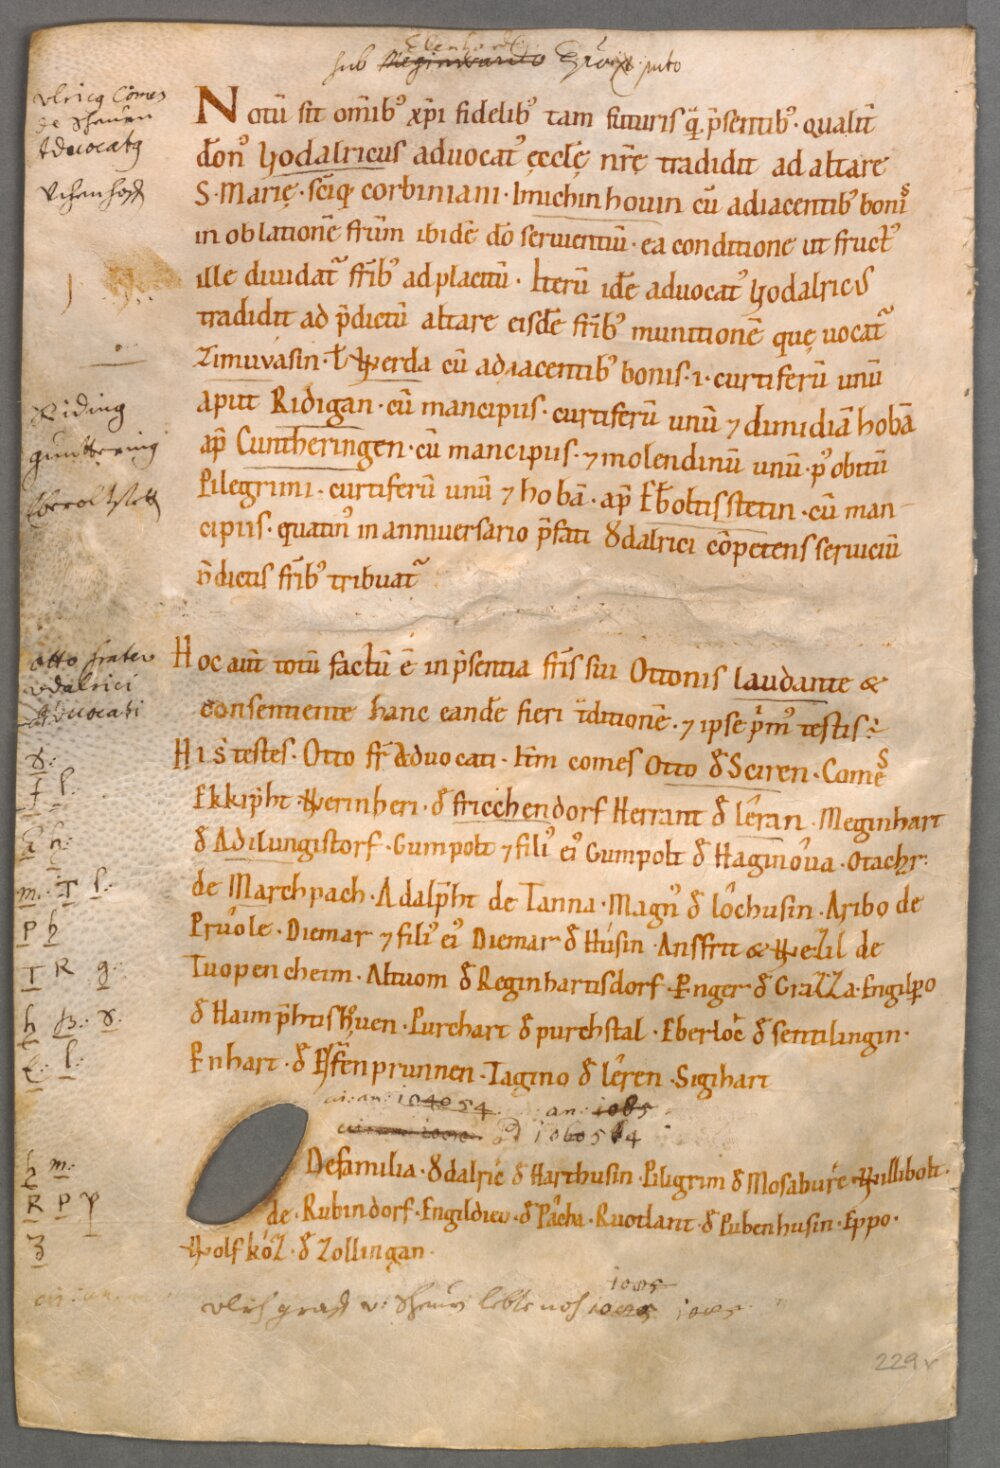 Eberhardo
sub Reginwardo
Vlricq Comes
de Scheuern
Advocatq
Notū sit om̄ib᷒ xp̄i fidelib᷒ tam futuris q̄ p̄sentib᷒ · qualit̄
don᷒ hodalricus advocat᷒ ęcclę̄ nr̄ę tradidit ad altare
S · Marię · sc̄iq; corbiniani · Imichinhouin cū adiacentib᷒ bonis
in oblationē fr̄m ibidē dō seruientiū · ea conditione ut fruct᷒
ille diuidat᷑ fr̄ib᷒ ad placitū · Iterū idē aduocat᷒ hodalricus
tradidit ad p̄dictū altare eisdē fr̄ib᷒ munitionē quę uocat᷑
Zimuvasin · ł Werda cū adiacentib᷒ bonis · i · curtiferū unū
Riding
aput Ridigan · cū mancipiis · curtiferū unū ⁊ dimidiā hobā
guntering
ap̄ Cuntheringen · cū mancipiis · ⁊ molendinū unū · p᷒ obitū
Eberoltstett
Piligrimi · curtiferū unū ⁊ hobā · ap̄ Eb̄oltisstetin · cū man
cipiis · quatin᷒ in anniuersario p̄fati Ǒdalrici cōpetens seruiciū
p̄dictis fr̄ib᷒ tribuat᷑
otto frater
vdalrici
Aduocati
Hoc aut̄ totū factū ē in p̄sentia fr̄is sui Ottonis laudante &
consentiente hanc eandē fieri t̄ditionē · ⁊ ipse p̄m᷒ testis ·
His testes · Otto fr̄ Advocati · It̄m comes Otto đ Sciren · Comes
Ekkip̄ht · Werinheri · đ friechendorf Herrant đ lêran · Meginhart
đ Adilungistorf · Gumpolt ⁊ fili᷒ ei᷒ Gumpolt đ Haginǒua · Otachr̄
m. T l.
de Marchpach · Adalp̄ht de Tanna · Magn᷒ đ lǒchusin · Aribo de
P h
Prǔole · Diemar ⁊ fili᷒ ei᷒ Diemar đ Húsin · Anffrit & Wezil de
T R g.
Tuopencheim · Altuom đ Reginhartisdorf · Enger đ Grazza · Engilpo
đ Haimp̄htishuen · Purchart đ purchstal · Eberloc̄ đ sentilingin ·
Enhart · đ prunnen · Tagino đ lêren · Sigihart
an: 1085
h m.
De familia · Ǒdalric̄ đ Harthusin · Piligrim đ Mosabure · Willibolt ·
R P P
de · Rubindorf · Engildieo · đ Pácha · Ruotlant · đ Pubenhusin · Eppo ·
Z
Wolfkóz · đ Zollingan ·
1085
Vlrich graff v: Scheurn lebte noch 1085
229v